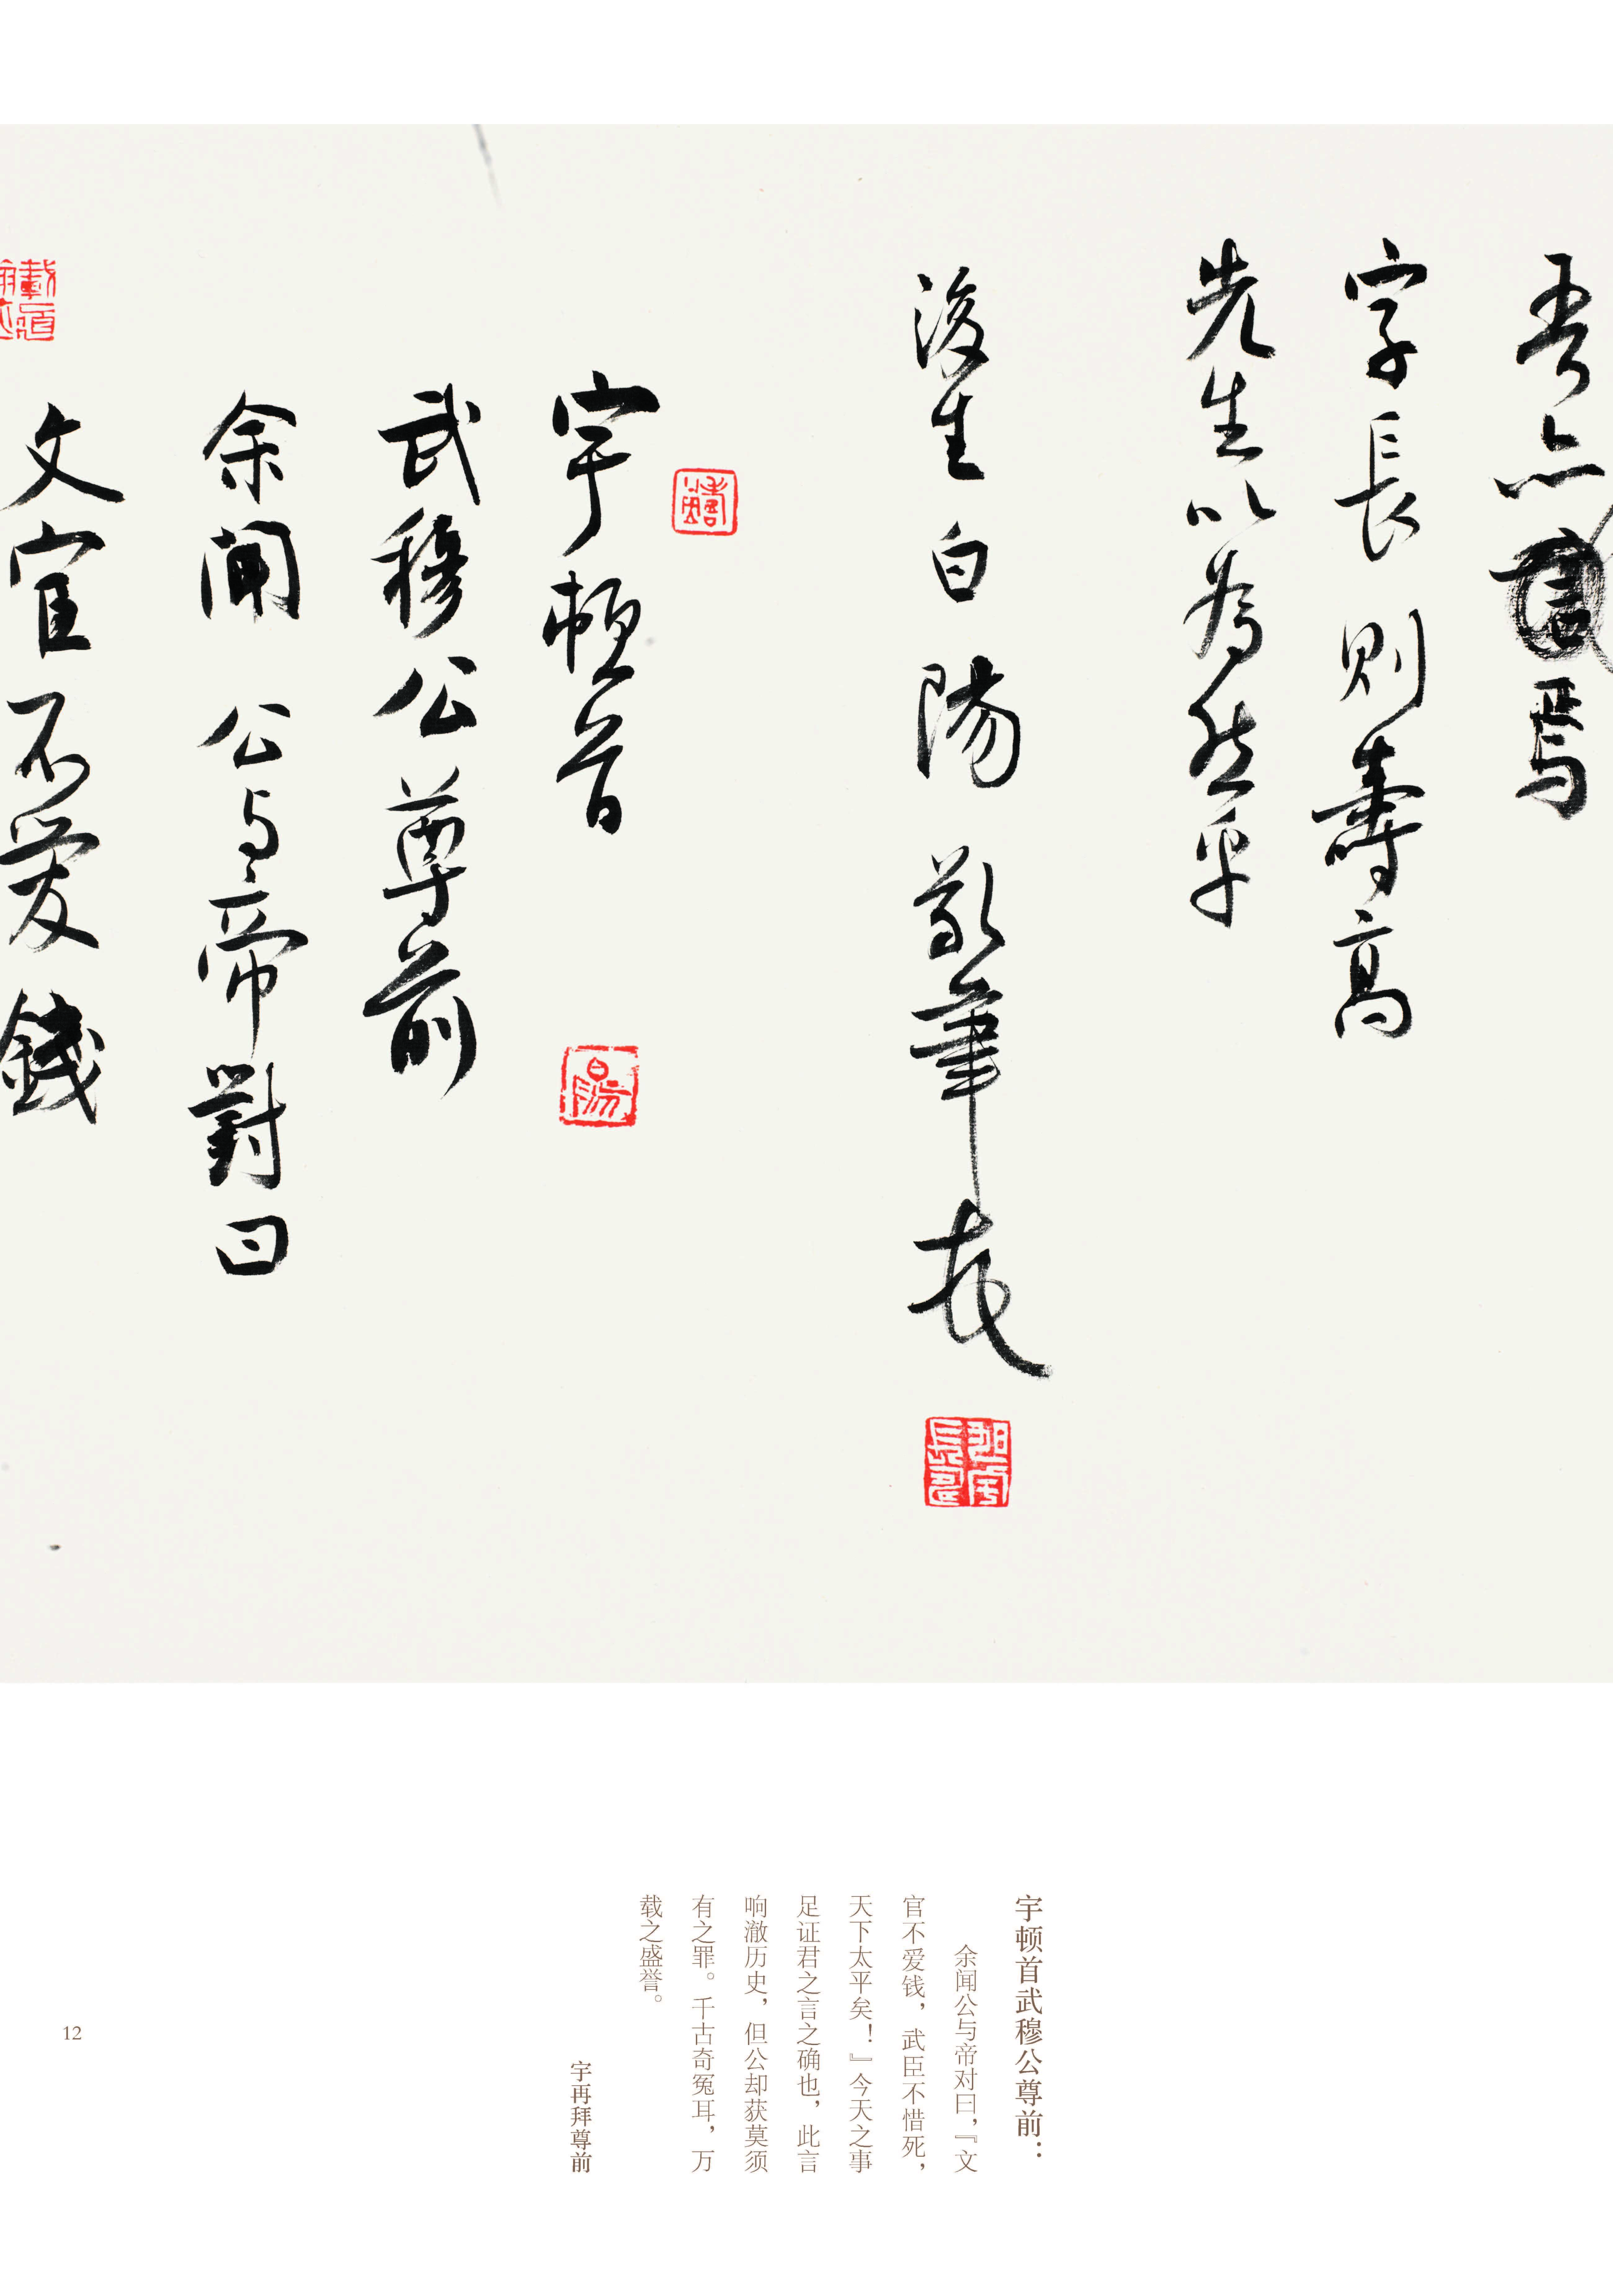 吾亦焉
字長則壽高
先生以為然乎
後生白陽敬筆
宇頓首
武穆公尊前
余聞公与帝對曰
文官不愛錢
宇顿首武穆公尊前：
余闻公与帝对曰，『文
官不爱钱，武臣不惜死，
天下太平矣！』今天之事
足证君之言之确也，此言
响澈历史，但公却获莫须
有之罪。千古奇冤耳，万
载之盛誉。
宇再拜尊前
12